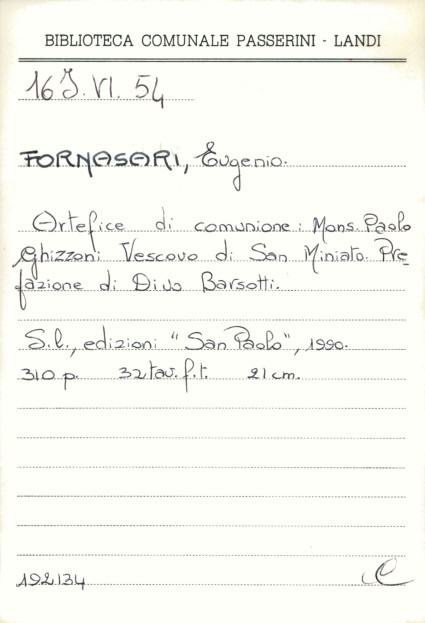 BIBLIOTECA COMUNALE PASSERINI - LANDI
16 J. VI. 54
FORNASARI, Eugenio.
Artefice di comunione: Mons. Paolo
Ghizzoni Vescovo di San Miniato. Pre=
fazione di Divo Barsotti.
S.l., edizioni "San Paolo", 1990.
310 p. 32 tav. f.t. 21 cm.
192134